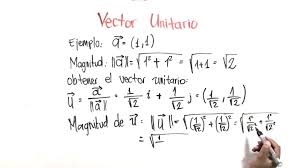 Vector Unitario
Ejemplo: a⃗ = (1,1)
Magnitud: ||a⃗|| = √(1² + 1²) = √(1+1) = √2
obtener el vector unitario:
u⃗ = a⃗/||a⃗|| = 1/√2 i + 1/√2 j = (1/√2, 1/√2)
Magnitud de u⃗: ||u⃗|| = √((1/√2)² + (1/√2)²) = √(1²/√2² + 1²/√2²)
= √(1